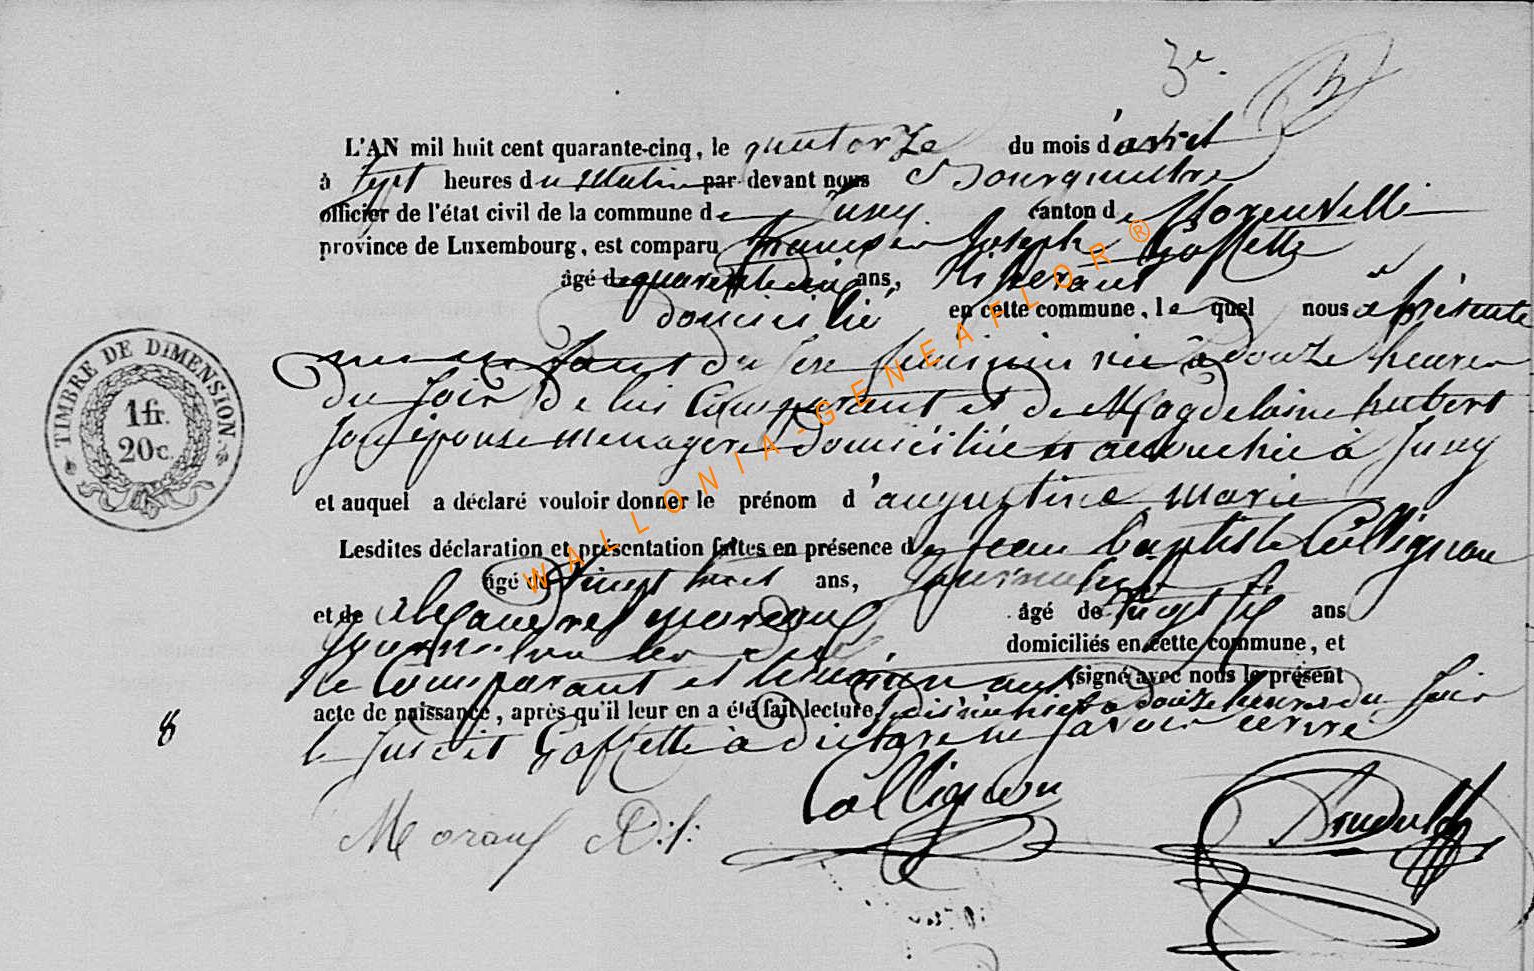 3e.
L'AN mil huit cent quarante-cinq, le quatorze du mois d'avril
à sept heures du matin par devant nous
officier de l'état civil de la commune de Izel canton de Florenville
province de Luxembourg, est comparu François Joseph Goffette
âgé de quarante ans, tisserant
domicilié en cette commune, lequel nous a présenté
un enfant du sexe féminin né à douze heures
du soir de lui Comparant et de Magdelaine hubert
son épouse menagere domiciliée et accouchée à
et auquel a déclaré vouloir donner le prénom d'augustine marie
Lesdites déclaration et présentation faites en présence de jean baptiste Collignon
âgé de vingt huit ans, journalier
et de alexandre âgé de vingt six ans
journalier domiciliés en cette commune, et
le Comparant et témoin ont signé avec nous le présent
acte de naissance, après qu'il leur en a été fait lecture, à douze heures du soir
le susdit Goffette à déclaré ne savoir écrire
8
Collignon
TIMBRE DE DIMENSION.
1 fr.
20 c.
WALLONIA-GENEAFLOR ®